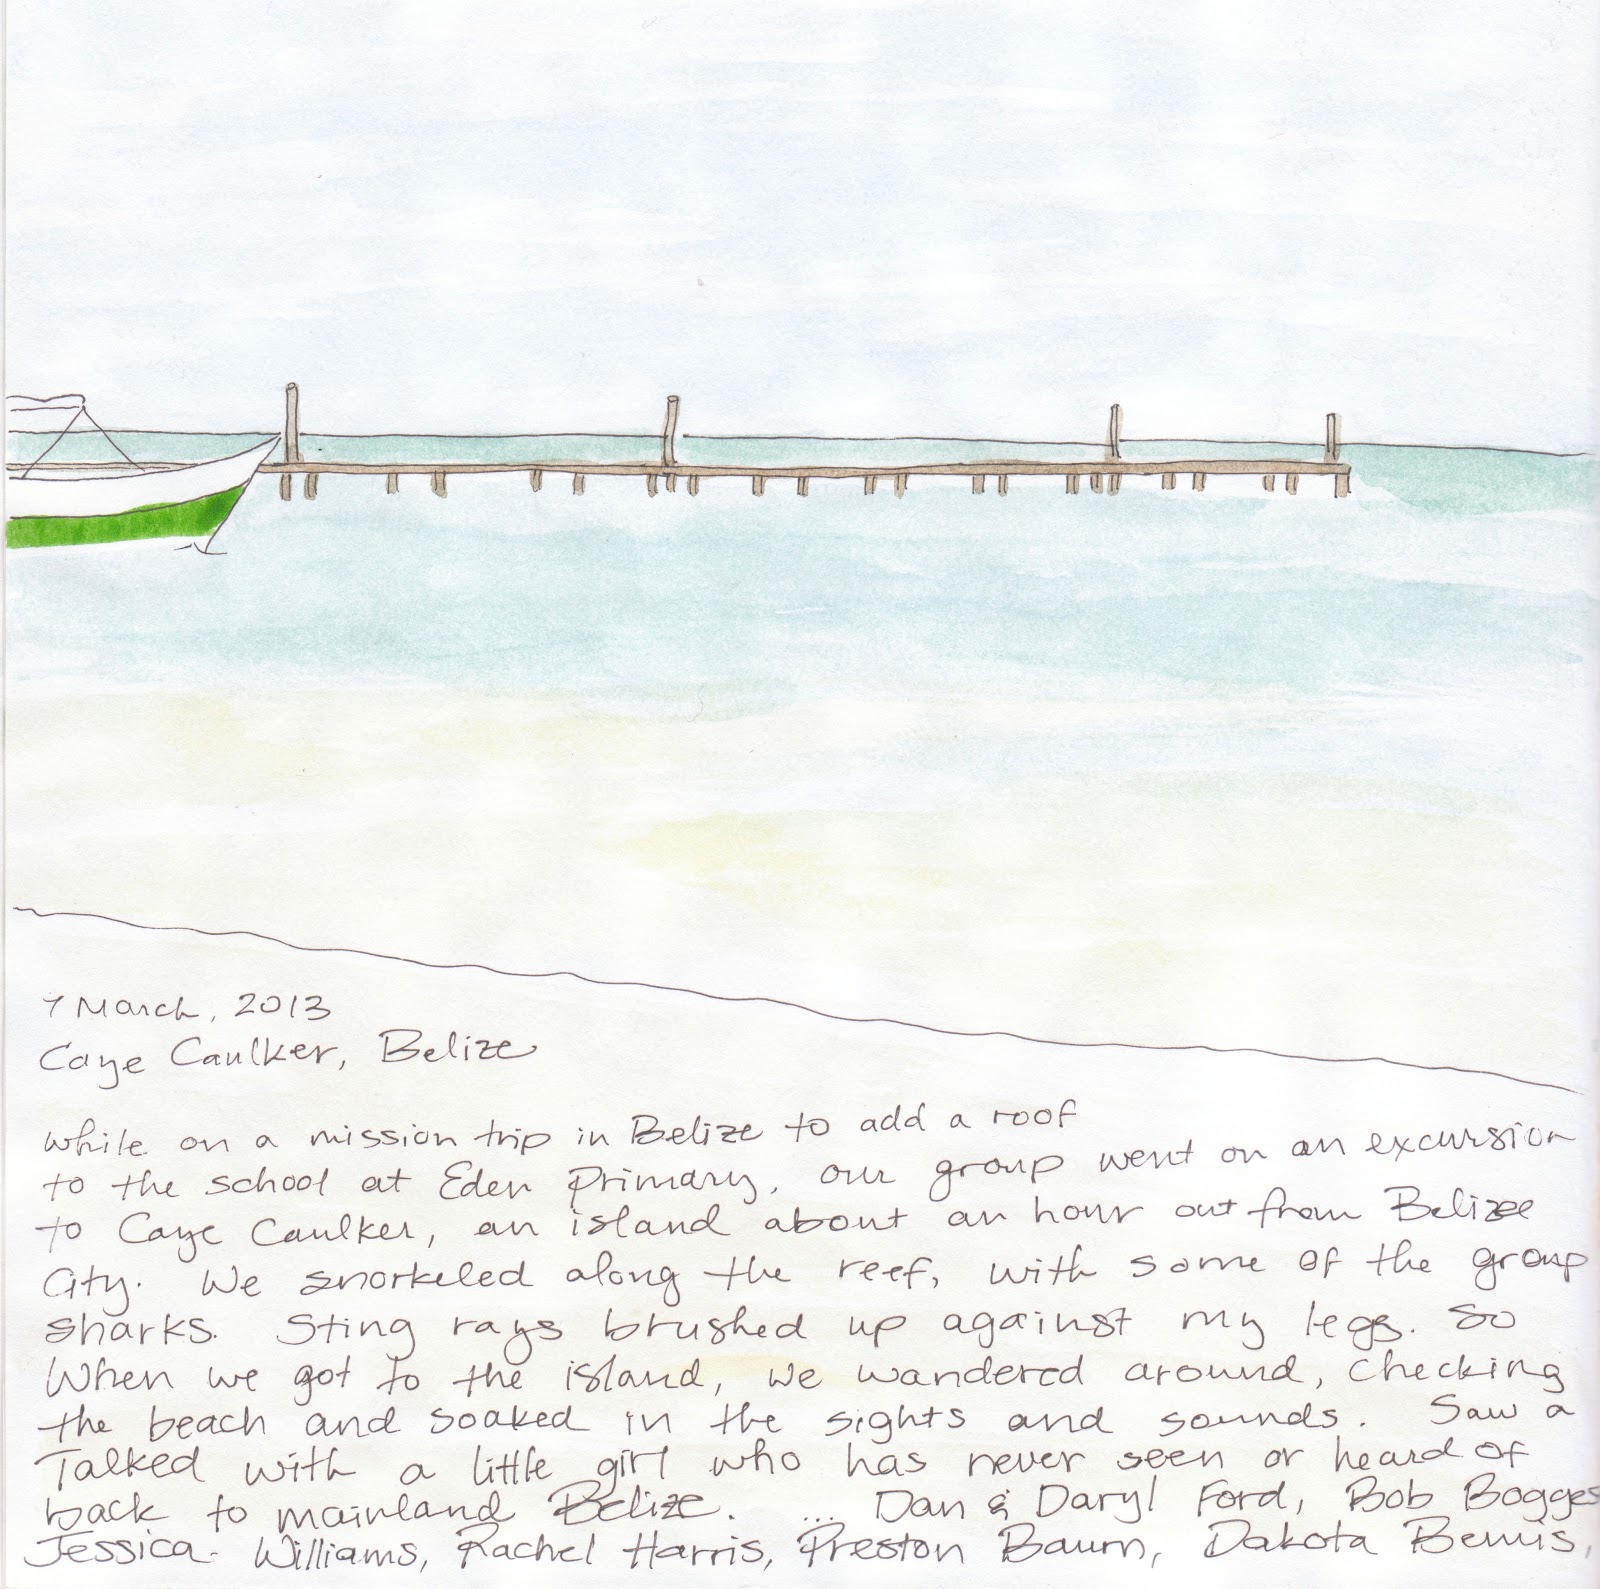 7 March, 2013
Caye Caulker, Belize
While on a mission trip in Belize to add a roof
to the school at Eden Primary, our group went on an excursion
to Caye Caulker, an island about an hour out from Belize
City. We snorkeled along the reef, with some of the group
sharks. Sting rays brushed up against my legs. So
When we got to the island, we wandered around, checking
the beach and soaked in the sights and sounds. Saw a
Talked with a little girl who has never seen or heard of
back to mainland Belize. ... Dan & Daryl Ford, Bob Bogges
Jessica Williams, Rachel Harris, Preston Baum, Dakota Bemis,